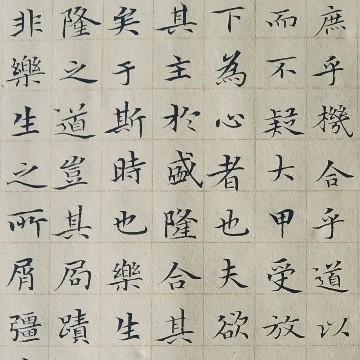 庶乎機合乎道以
而不疑大甲受放
下為心者也夫欲
其主於盛隆合其
矣于斯時也樂生
隆之道豈其局蹟
非樂生之所屑彊